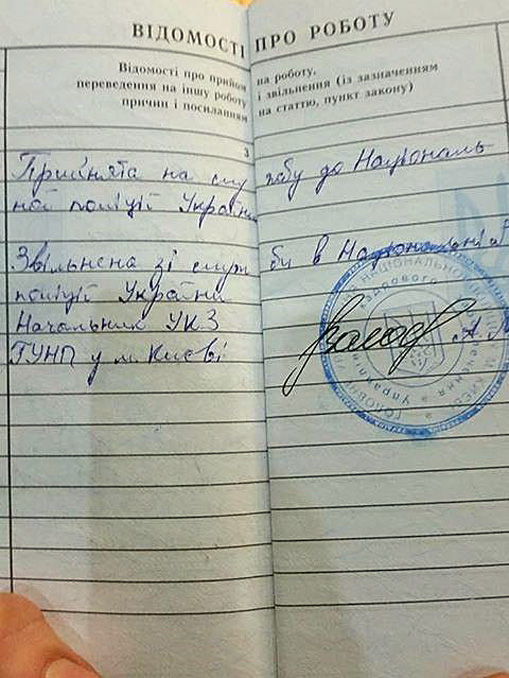 ВІДОМОСТІ ПРО РОБОТУ
Відомості про прийом на роботу,
переведення на іншу роботу і звільнення (із зазначенням
причин і посиланням на статтю, пункт закону)
3
Прийнята на службу до Національ
ної поліції України
Звільнена зі служби в Національній
поліції України
Начальник УКЗ
ГУНП у м. Києві А.